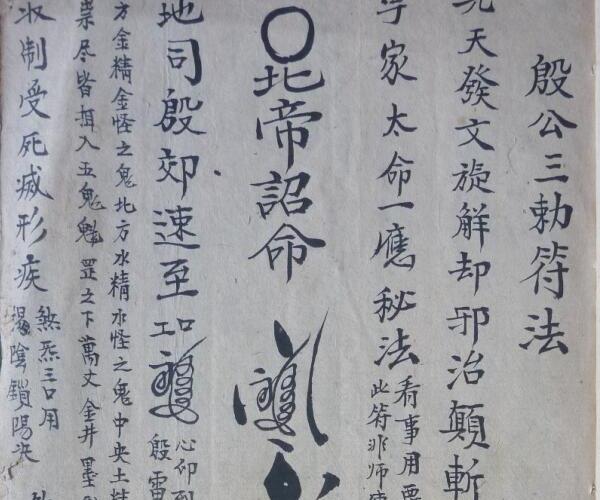 殷公三勅符法
天發文旋解却邪治顛斬
家太命一應秘法
看事用要
此符非師
北帝詔命
地司殷郊速至
心仰到
殷雷
方金精金怪之鬼北方水精水怪之鬼中央土精
票尽皆揖入五鬼魁罡之下萬丈金井墨
制受死滅形疾
煞炁三口用
陰鎖陽决